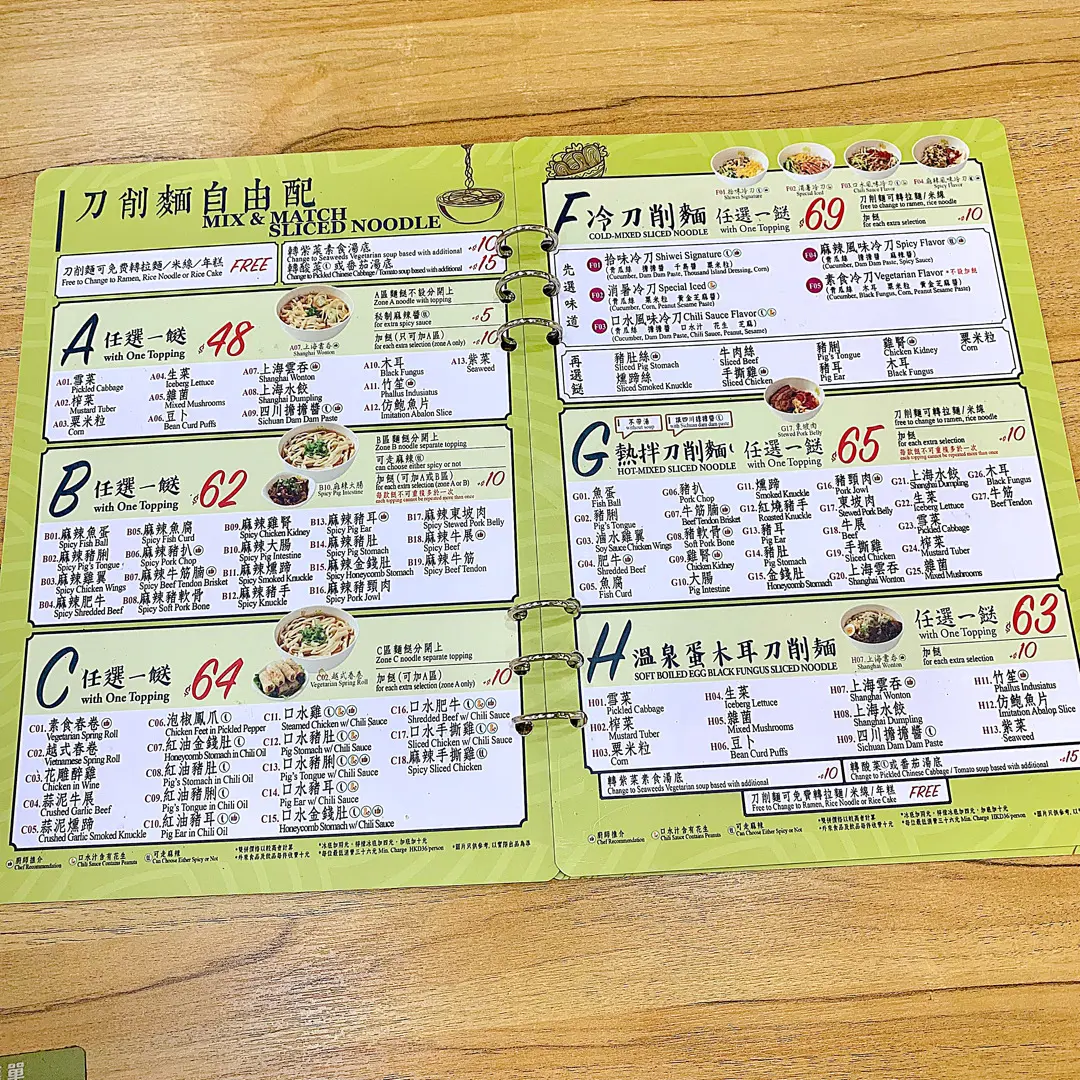 刀削麵自由配
MIX & MATCH
SLICED NOODLE
刀削麵可免費轉拉麵/米線/年糕 FREE
Free to Change to Ramen, Rice Noodle or Rice Cake
轉紫菜素食湯底 +10
Change to Seaweeds Vegetarian soup based with additional
轉酸菜或番茄湯底 +15
Change to Pickled Chinese Cabbage / Tomato soup based with additional
A 任選一餸 $48
with One Topping
A07.上海雲吞
Shanghai Wonton
A區麵餸不設分開上
Zone A noodle with topping
秘制麻辣醬 +5
for extra spicy sauce
加餸(只可加A區) +10
for each extra selection (zone A only)
A01.雪菜
Pickled Cabbage
A02.榨菜
Mustard Tuber
A03.粟米粒
Corn
A04.生菜
Iceberg Lettuce
A05.雜菌
Mixed Mushrooms
A06.豆卜
Bean Curd Puffs
A07.上海雲吞
Shanghai Wonton
A08.上海水餃
Shanghai Dumpling
A09.四川擔擔醬
Sichuan Dam Dam Paste
A10.木耳
Black Fungus
A11.竹笙
Phallus Indusiatus
A12.仿鮑魚片
Imitation Abalone Slice
A13.紫菜
Seaweed
B 任選一餸 $62
with One Topping
B10.麻辣大腸
Spicy Pig Intestine
B區麵餸分開上
Zone B noodle separate topping
可走麻辣
can choose either spicy or not
加餸(可加A或B區) +10
for each extra selection (zone A or B)
每款餸不可重複多於一次
each topping cannot be repeated more than once
B01.麻辣魚蛋
Spicy Fish Ball
B02.麻辣豬脷
Spicy Pig's Tongue
B03.麻辣雞翼
Spicy Chicken Wings
B04.麻辣肥牛
Spicy Shredded Beef
B05.麻辣魚腐
Spicy Fish Curd
B06.麻辣豬扒
Spicy Pork Chop
B07.麻辣牛筋腩
Spicy Beef Tendon Brisket
B08.麻辣豬軟骨
Spicy Soft Pork Bone
B09.麻辣雞腎
Spicy Chicken Kidney
B10.麻辣大腸
Spicy Pig Intestine
B11.麻辣燻蹄
Spicy Smoked Knuckle
B12.麻辣豬手
Spicy Knuckle
B13.麻辣豬耳
Spicy Pig Ear
B14.麻辣豬肚
Spicy Pig Stomach
B15.麻辣金錢肚
Spicy Honeycomb Stomach
B16.麻辣豬頸肉
Spicy Pork Jowl
B17.麻辣東坡肉
Spicy Stewed Pork Belly
B18.麻辣牛展
Spicy Beef
B19.麻辣牛筋
Spicy Beef Tendon
C 任選一餸 $64
with One Topping
C02.越式春卷
Vegetarian Spring Roll
C區麵餸分開上
Zone C noodle separate topping
加餸(可加A區) +10
for each extra selection (zone A only)
C01.素食春卷
Vegetarian Spring Roll
C02.越式春卷
Vietnamese Spring Roll
C03.花雕醉雞
Chicken in Wine
C04.蒜泥牛展
Crushed Garlic Beef
C05.蒜泥燻蹄
Crushed Garlic Smoked Knuckle
C06.泡椒鳳爪
Chicken Feet in Pickled Pepper
C07.紅油金錢肚
Honeycomb Stomach in Chili Oil
C08.紅油豬肚
Pig's Stomach in Chili Oil
C09.紅油豬脷
Pig's Tongue in Chili Oil
C10.紅油豬耳
Pig Ear in Chili Oil
C11.口水雞
Steamed Chicken w/ Chili Sauce
C12.口水豬肚
Pig Stomach w/ Chili Sauce
C13.口水豬脷
Pig's Tongue w/ Chili Sauce
C14.口水豬耳
Pig Ear w/ Chili Sauce
C15.口水金錢肚
Honeycomb Stomach w/ Chili Sauce
C16.口水肥牛
Shredded Beef w/ Chili Sauce
C17.口水手撕雞
Sliced Chicken w/ Chili Sauce
C18.麻辣手撕雞
Spicy Sliced Chicken
廚師推介
Chef Recommendation
口水汁含有花生
Chili Sauce Contains Peanuts
可走麻辣
Can Choose Either Spicy or Not
*雙併價格以較高者計算
*外來食品及飲品每件收費十元
*冰底加四元,檸檬冰加四元,加底加十元
*每位最低消費三十六元 Min. Charge HKD36/person
*圖片只供參考,以實際出品為準
F01.拾味冷刀
Shiwei Signature
F02.消暑冷刀
Special Iced
F03.口水風味冷刀
Chili Sauce Flavor
F04.麻辣風味冷刀
Spicy Flavor
F 冷刀削麵 任選一餸 $69
COLD-MIXED SLICED NOODLE with One Topping
刀削麵可轉拉麵/米線
free to change to ramen, rice noodle
加餸 +10
for each extra selection
先選味道
F01 拾味冷刀 Shiwei Signature
(青瓜絲 擔擔醬 千島醬 粟米粒)
(Cucumber, Dam Dam Paste, Thousand Island Dressing, Corn)
F02 消暑冷刀 Special Iced
(青瓜絲 粟米粒 黃金芝麻醬)
(Cucumber, Corn, Peanut Sesame Paste)
F03 口水風味冷刀 Chili Sauce Flavor
(青瓜絲 擔擔醬 口水汁 花生 芝麻)
(Cucumber, Dam Dam Paste, Chili Sauce, Peanut, Sesame)
F04 麻辣風味冷刀 Spicy Flavor
(青瓜絲 擔擔醬 麻辣醬)
(Cucumber, Dam Dam Paste, Spicy Sauce)
F05 素食冷刀 Vegetarian Flavor *不設加餸
(青瓜絲 木耳 粟米粒 黃金芝麻醬)
(Cucumber, Black Fungus, Corn, Peanut Sesame Paste)
再選餸
豬肚絲
Sliced Pig Stomach
燻蹄絲
Sliced Smoked Knuckle
牛肉絲
Sliced Beef
手撕雞
Sliced Chicken
豬脷
Pig's Tongue
豬耳
Pig Ear
雞腎
Chicken Kidney
木耳
Black Fungus
粟米粒
Corn
不帶湯
without soup
跟四川擔擔醬
with Sichuan dam dam paste
G17.東坡肉
Stewed Pork Belly
G 熱拌刀削麵 任選一餸 $65
HOT-MIXED SLICED NOODLE with One Topping
刀削麵可轉拉麵/米線
free to change to ramen, rice noodle
加餸 +10
for each extra selection
每款餸不可重複多於一次
each topping cannot be repeated more than once
G01.魚蛋
Fish Ball
G02.豬脷
Pig's Tongue
G03.滷水雞翼
Soy Sauce Chicken Wings
G04.肥牛
Shredded Beef
G05.魚腐
Fish Curd
G06.豬扒
Pork Chop
G07.牛筋腩
Beef Tendon Brisket
G08.豬軟骨
Soft Pork Bone
G09.雞腎
Chicken Kidney
G10.大腸
Pig Intestine
G11.燻蹄
Smoked Knuckle
G12.紅燒豬手
Roasted Knuckle
G13.豬耳
Pig Ear
G14.豬肚
Pig Stomach
G15.金錢肚
Honeycomb Stomach
G16.豬頸肉
Pork Jowl
G17.東坡肉
Stewed Pork Belly
G18.牛展
Beef
G19.手撕雞
Sliced Chicken
G20.上海雲吞
Shanghai Wonton
G21.上海水餃
Shanghai Dumpling
G22.生菜
Iceberg Lettuce
G23.雪菜
Pickled Cabbage
G24.榨菜
Mustard Tuber
G25.雜菌
Mixed Mushrooms
G26.木耳
Black Fungus
G27.牛筋
Beef Tendon
H 溫泉蛋木耳刀削麵
SOFT BOILED EGG BLACK FUNGUS SLICED NOODLE
H07.上海雲吞
Shanghai Wonton
任選一餸 $63
with One Topping
加餸 +10
for each extra selection
H01.雪菜
Pickled Cabbage
H02.榨菜
Mustard Tuber
H03.粟米粒
Corn
H04.生菜
Iceberg Lettuce
H05.雜菌
Mixed Mushrooms
H06.豆卜
Bean Curd Puffs
H07.上海雲吞
Shanghai Wonton
H08.上海水餃
Shanghai Dumpling
H09.四川擔擔醬
Sichuan Dam Dam Paste
H11.竹笙
Phallus Indusiatus
H12.仿鮑魚片
Imitation Abalone Slice
H13.紫菜
Seaweed
轉紫菜素食湯底 +10
Change to Seaweeds Vegetarian soup based with additional
轉酸菜或番茄湯底 +15
Change to Pickled Chinese Cabbage / Tomato soup based with additional
刀削麵可免費轉拉麵/米線/年糕 FREE
Free to Change to Ramen, Rice Noodle or Rice Cake
廚師推介
Chef Recommendation
口水汁含有花生
Chili Sauce Contains Peanuts
可走麻辣
Can Choose Either Spicy or Not
*雙併價格以較高者計算
*外來食品及飲品每件收費十元
*冰底加四元,檸檬冰加四元,加底加十元
*每位最低消費三十六元 Min. Charge HKD36/person
*圖片只供參考,以
單